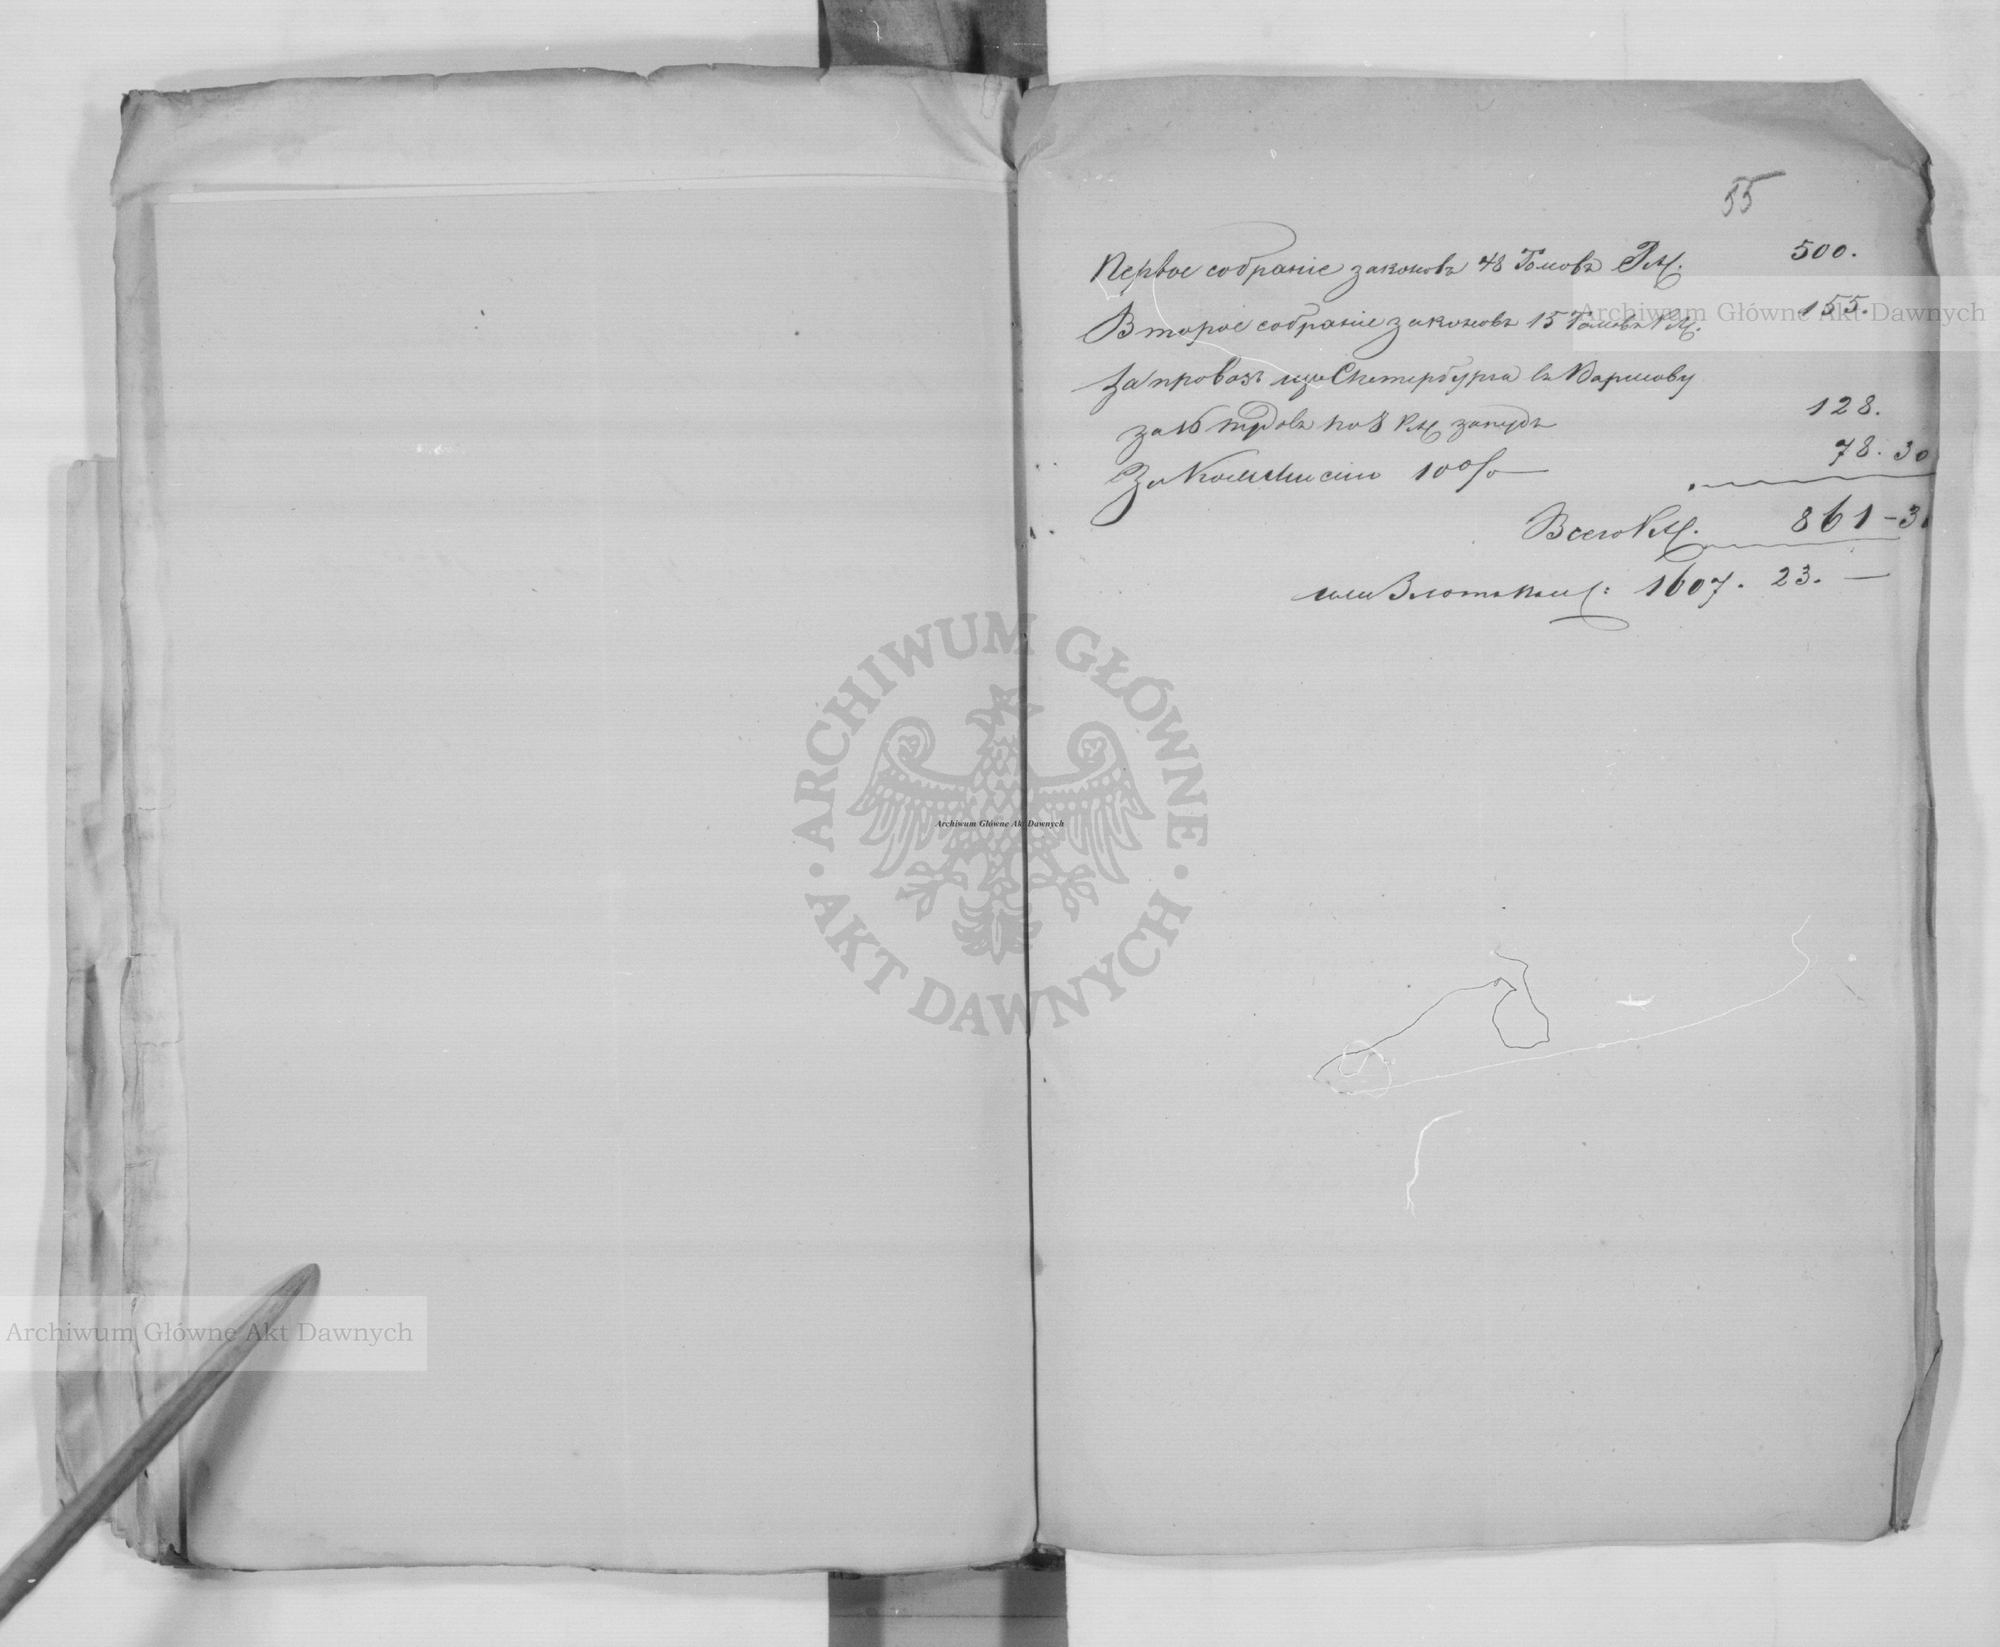 55
Первое собраніе законовъ 48 Томовъ РМ. 500.
Второе собраніе законовъ 15 Томовъ РМ. 155.
За провозъ изъ Спетербурга въ Варшаву
за 16 пудовъ по 8 РМ за пудъ 128.
За Коммисію 10 % 78. 30
Всего РМ. 861-3
или Злот. 1607. 23. —
Archiwum Główne Akt Dawnych
ARCHIWUM GŁÓWNE
AKT DAWNYCH
Archiwum Główne Akt Dawnych
Archiwum Główne Akt Dawnych